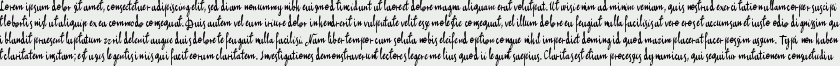 Lorem ipsum dolor sit amet, consectetuer adipiscing elit, sed diam nonummy nibh euismod tincidunt ut laoreet dolore magna aliquam erat volutpat. Ut wisi enim ad minim veniam, quis nostrud exerci tation ullamcorper suscip
t lobortis nisl ut aliquip ex ea commodo consequat. Duis autem vel eum iriure dolor in hendrerit in vulputate velit esse molestie consequat, vel illum dolore eu feugiat nulla facilisis at vero eros et accumsan et iusto odio dignissim qu
i blandit praesent luptatum zzril delenit augue duis dolore te feugait nulla facilisi. Nam liber tempor cum soluta nobis eleifend option congue nihil imperdiet doming id quod mazim placerat facer possim assum. Typi non haben
t claritatem insitam; est usus legentis in iis qui facit eorum claritatem. Investigationes demonstraverunt lectores legere me lius quod ii legunt saepius. Claritas est etiam processus dynamicus, qui sequitur mutationem consuetudiu